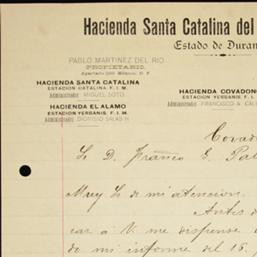 Hacienda Santa Catalina del
Estado de Duran
PABLO MARTINEZ DEL RIO
PROPIETARIO.
Apartado 260 México, D. F.
HACIENDA SANTA CATALINA
ESTACION CATALINA, F. I. M.
Administrador MIGUEL SOTO.
HACIENDA COVADON
ESTACION YERBANIS, F. I.
Administrador FRANCISCO A. CAL
HACIENDA EL ALAMO
ESTACION YERBANIS, F. I. M.
Administrador DIONISIO SALAS H.
Covad
Sr. D. Franco G. Pal
Muy Sr. de mi atencion.
Antes d
car á V. me dispense
de mi informe del 15,